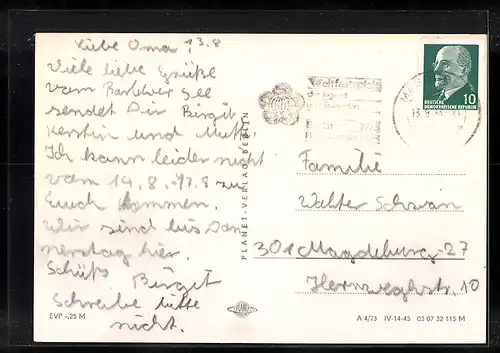 Liebe Oma! 13.8
Viele liebe Grüße
vom Barleber See
sendet Dir Birgit
Kerstin und Mutti.
Ich kann leider nicht
vom 19.8.-17.8 zu
Euch kommen.
Wir sind bis Don
nerstag hier.
Schüß Birgit
Schreibe bitte
nicht.
EVP -,25 M
PLANET-VERLAG BERLIN
PLANET
Weltfestspiele
Berlin 1973
DEUTSCHE
DEMOKRATISCHE REPUBLIK
10
Familie
Walter Schwan
301 Magdeburg-27
Herweghstr. 10
A 4/73 IV-14-45 03 07 32 115 M